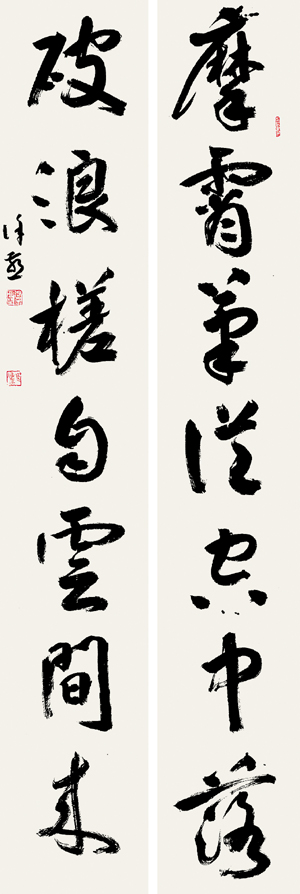 摩霄筆從空中落
破浪槎自雲間來